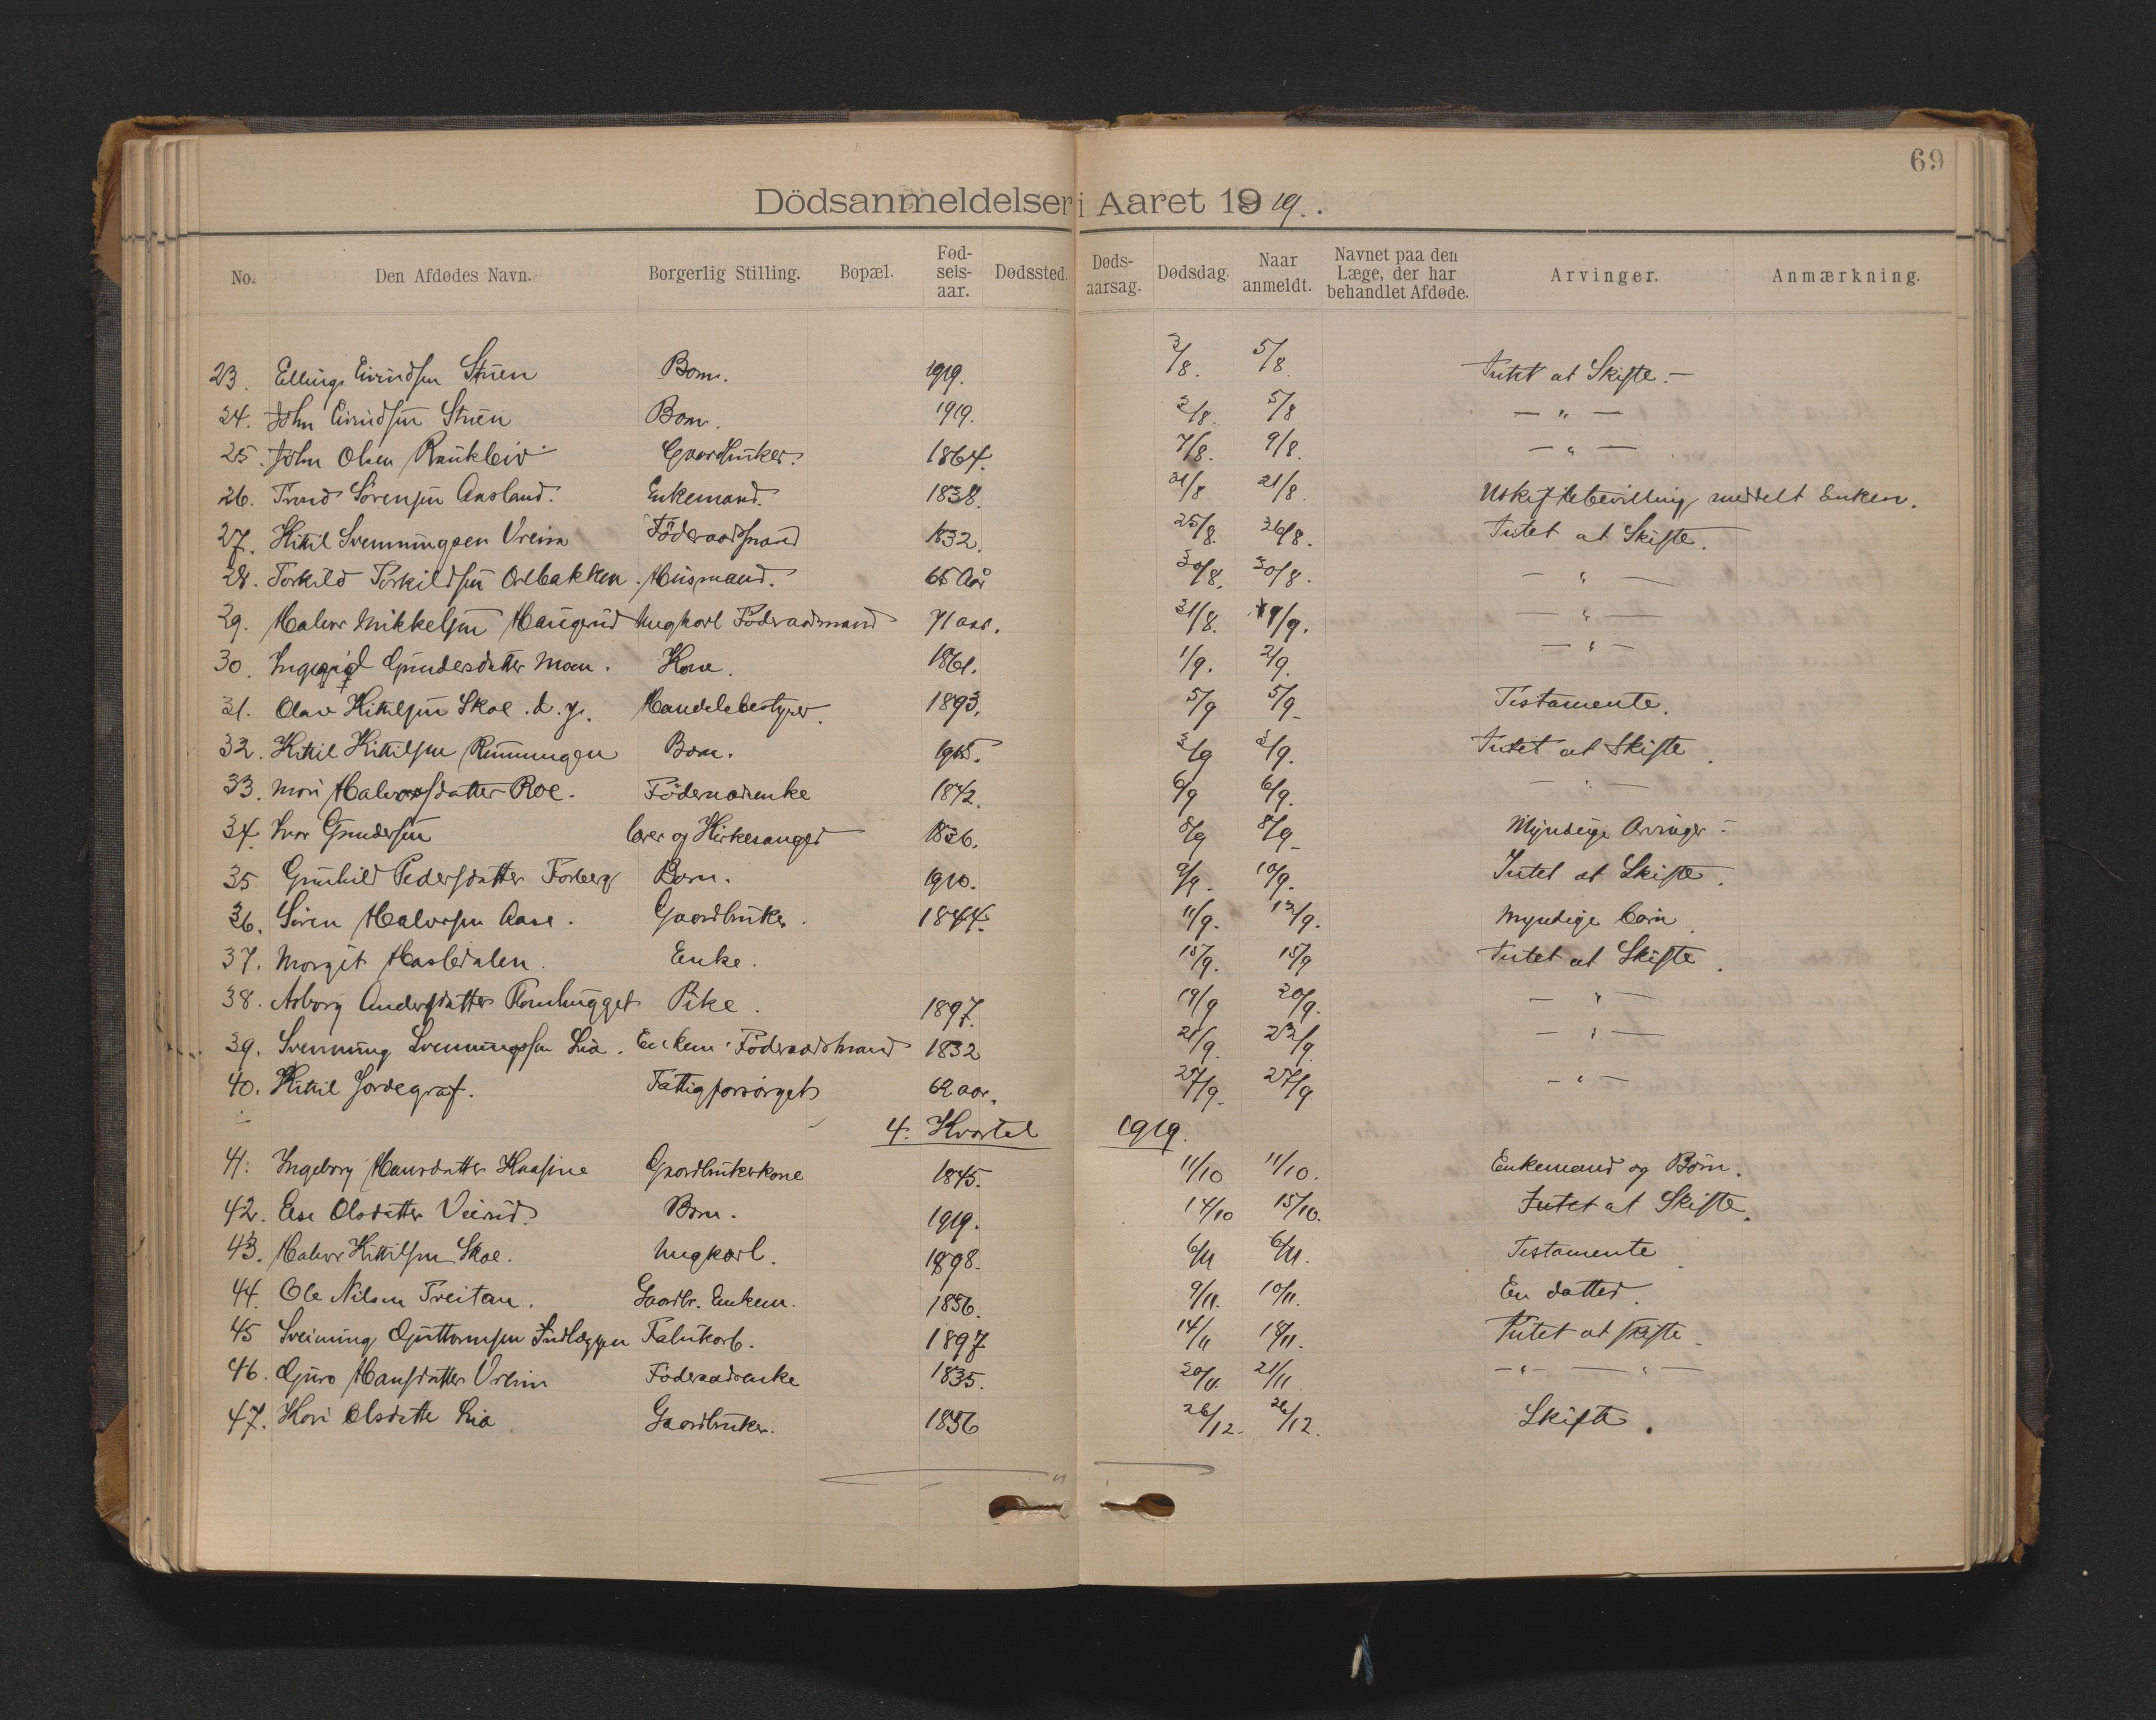 69
Dödsanmeldelser i Aaret 1919.
No. Den Afdødes Navn. Borgerlig Stilling. Bopæl. Fødselsaar. Dødssted. Dødsaarsag. Dødsdag. Naar anmeldt. Navnet paa den Læge, der har behandlet Afdøde. Arvinger. Anmærkning.
23. Elling Eivindsen Stuen Barn. 1919. 3/8. 5/8. Intet at Skifte. -
24. John Eivindsen Stuen Barn. 1919. 2/8. 5/8 — " —
25. John Olsen Raukleiv Gaardbruker. 1864. 7/8. 9/8. — " —
26. Trond Sørensen Aasland. Enkemand. 1838. 21/8 21/8. Uskiftebevilling meddelt Enken.
27. Kittil Svenningsen Vreim Föderaadsmand 1832. 25/8. 26/8. Intet at Skifte.
28. Torkild Torkildsen Orebakken. Husmand. 65 Aar 30/8. 30/8. — " —
29. Halvor Mikkelsen Haugerud Ungkarl Föderaadmand 71 aar. 31/8. 1/9. — " —
30. Gundersdatter Moen. Kone. 1861. 1/9. 2/9. — " —
31. Olav Kittilsen Skoe d. y. Handelsbestyrer. 1893. 5/9 5/9 Testamente.
32. Kittil Kittilsen Runningen Barn. 1915. 3/9 3/9. Intet at Skifte.
33. Mari Halvorsdatter Roe. Föderaadsenke 1842. 6/9 6/9. — " —
34. Ivar Gundersen lærer og Kirkesanger 1836. 8/9 8/9 Myndige Arvinger -
35 Gunhild Pedersdatter Forberg Barn. 1910. 9/9. 10/9. Intet at Skifte.
36. Søren Halvorsen Aase. Gaardbruker. 1844. 11/9. 12/9. Myndige børn.
37. Margit Hasledalen. Enke. 15/9. 15/9 Intet at Skifte.
38. Asborg Andersdatter Pike. 1897. 19/9 20/9. — " —
39. Svenning Svenningsen Lia. Enkem. Föderaadsmand 1832 21/9. 23/9. — " —
40. Kittil Jordegraf. Fattigforsørget 62 aar. 27/9. 27/9 — " —
4. Kvartal 1919.
41. Ingeborg Hansdatter Haasine Gaardbrukerkone 1845. 11/10 11/10. Enkemand og Børn.
42. Else Olsdatter Veirud. Barn. 1919. 14/10 15/10. Intet at Skifte.
43. Halvor Kittilsen Skoe. Ungkarl. 1898. 6/11 6/11. Testamente.
44. Ole Nilsen Treitan. Gaardbr. Enkem. 1856. 9/11. 10/11. En datter.
45 Sveinung Guttormsen Fabrikarb. 1897 14/11 18/11. Intet at skifte
46. Guro Hansdatter Vreim Föderaadsenke 1835. 20/11. 21/11 — " — — " —
47. Kari Olsdatter Lia Gaardbruker. 1856 26/12. 26/12. Skifte.